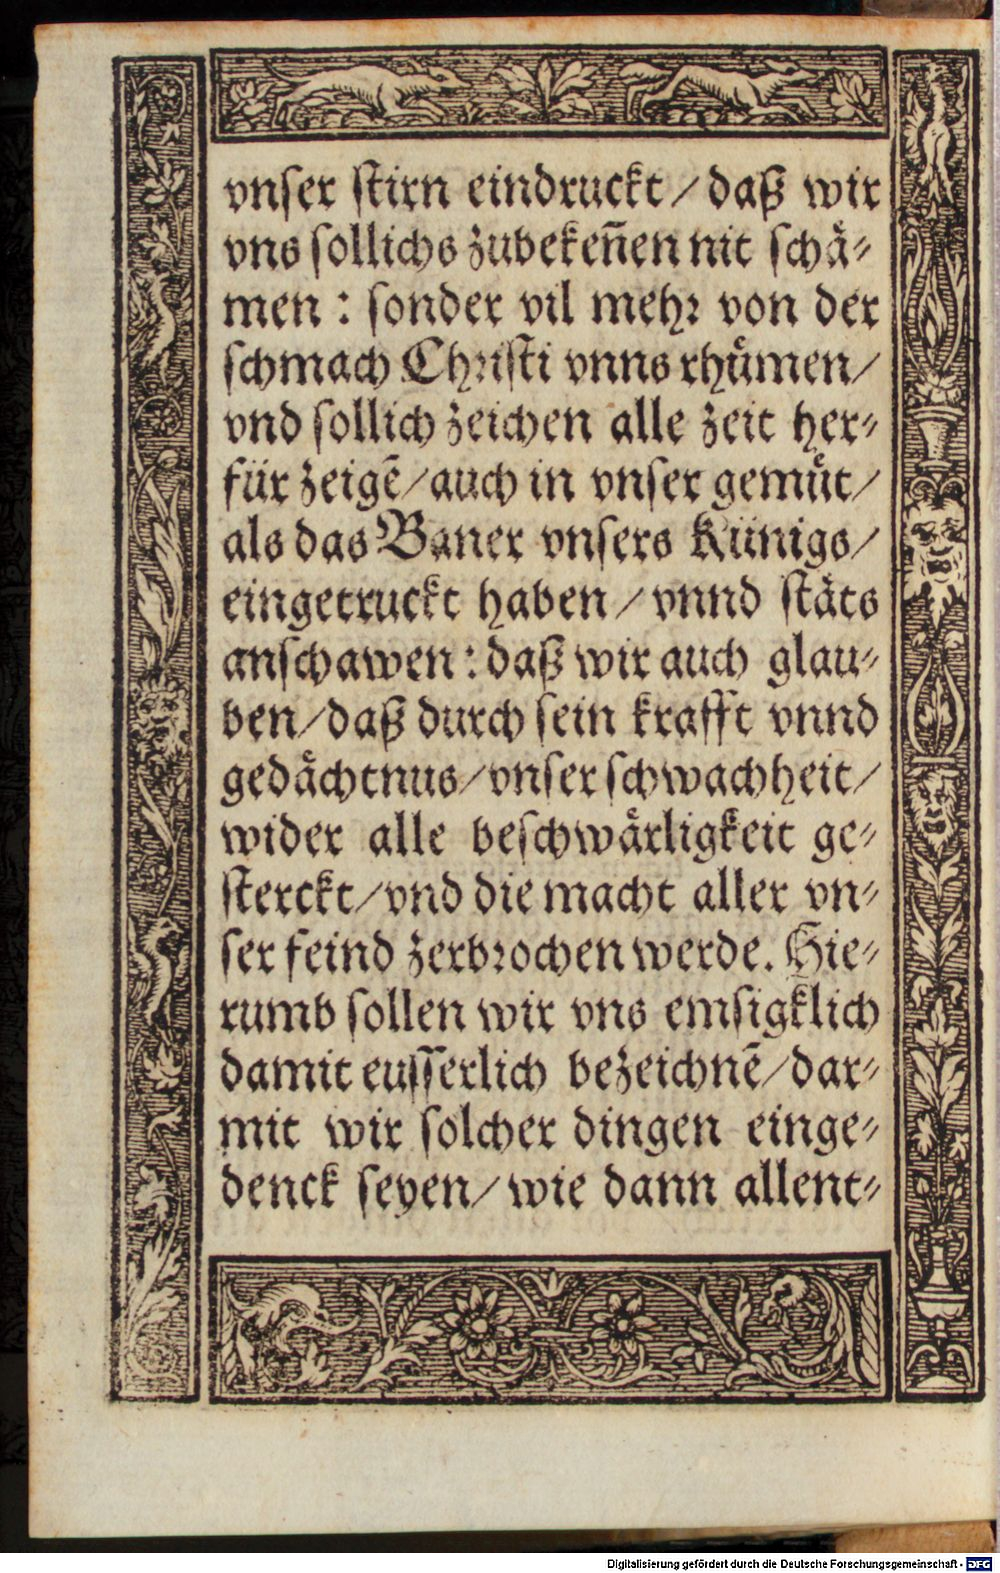 vnser stirn eindruckt / daß wir
vns sollichs zubekeñen nit schä⸗
men : sonder vil mehr von der
schmach Christi vnns rhuͤmen /
vnd sollich zeichen alle zeit her⸗
für zeigē / auch in vnser gemuͤt /
als das Baner vnsers Künigs /
eingetruckt haben / vnnd stäts
anschawen : daß wir auch glau⸗
ben / daß durch sein krafft vnnd
gedächtnus / vnser schwachheit /
wider alle beschwärligkeit ge⸗
sterckt / vnd die macht aller vn⸗
ser feind zerbrochen werde. Hie⸗
rumb sollen wir vns emsigklich
damit eusserlich bezeichnē / dar⸗
mit wir solcher dingen einge⸗
denck seyen / wie dann allent⸗
Digitalisierung gefördert durch die Deutsche Forschungsgemeinschaft - DFG